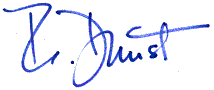 R. Dunst